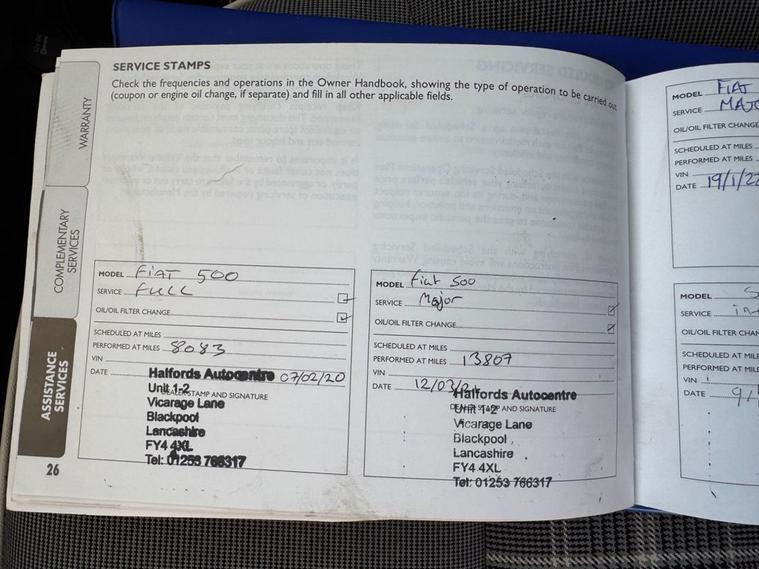 SERVICE STAMPS
Check the frequencies and operations in the Owner Handbook, showing the type of operation to be carried out
(coupon or engine oil change, if separate) and fill in all other applicable fields.
WARRANTY
COMPLEMENTARY
SERVICES
ASSISTANCE
SERVICES
26
MODEL FIAT 500
SERVICE FULL
OIL/OIL FILTER CHANGE
SCHEDULED AT MILES
PERFORMED AT MILES 8083
VIN
DATE 07/02/20
Halfords Autocentre
Unit 1-2
STAMP AND SIGNATURE
Vicarage Lane
Blackpool
Lancashire
FY4 4XL
Tel: 01253 766317
MODEL Fiat 500
SERVICE Major
OIL/OIL FILTER CHANGE
SCHEDULED AT MILES
PERFORMED AT MILES 13807
VIN
DATE 12/03/
Halfords Autocentre
Unit 1-2
AND SIGNATURE
Vicarage Lane
Blackpool
Lancashire
FY4 4XL
Tel: 01253 766317
MODEL FIAT
SERVICE
OIL/OIL FILTER CHANGE
SCHEDULED AT MILES
PERFORMED AT MILES
VIN
DATE 19/1/22
MODEL
SERVICE
OIL/OIL FILTER CHAN
SCHEDULED AT MILE
PERFORMED AT MILE
VIN
DATE